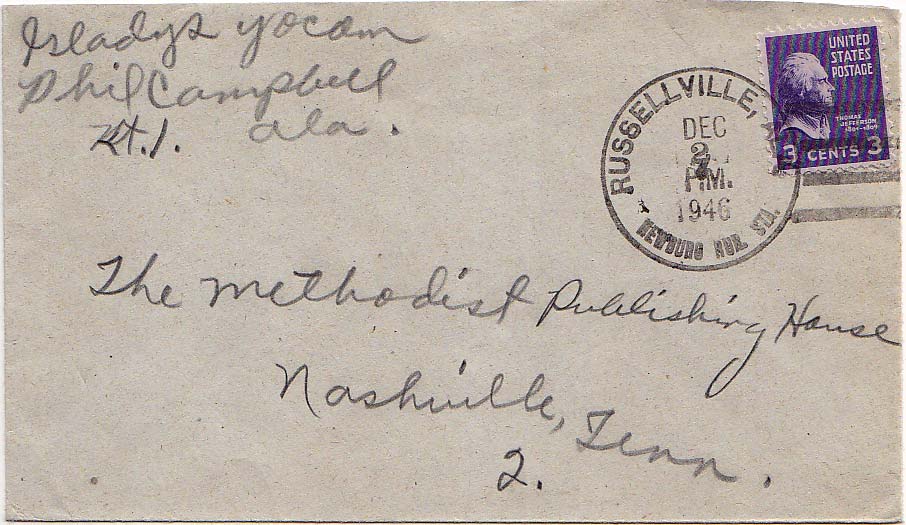 Gladys Yocom
Phil Campbell
Rt. 1. Ala.
UNITED
STATES
POSTAGE
THOMAS
JEFFERSON
1801-1809
3 CENTS 3
RUSSELLVILLE,
DEC
PM.
1946
NEWBURG RUR. STA.
The Methodist Publishing House
Nashville, Tenn.
2.